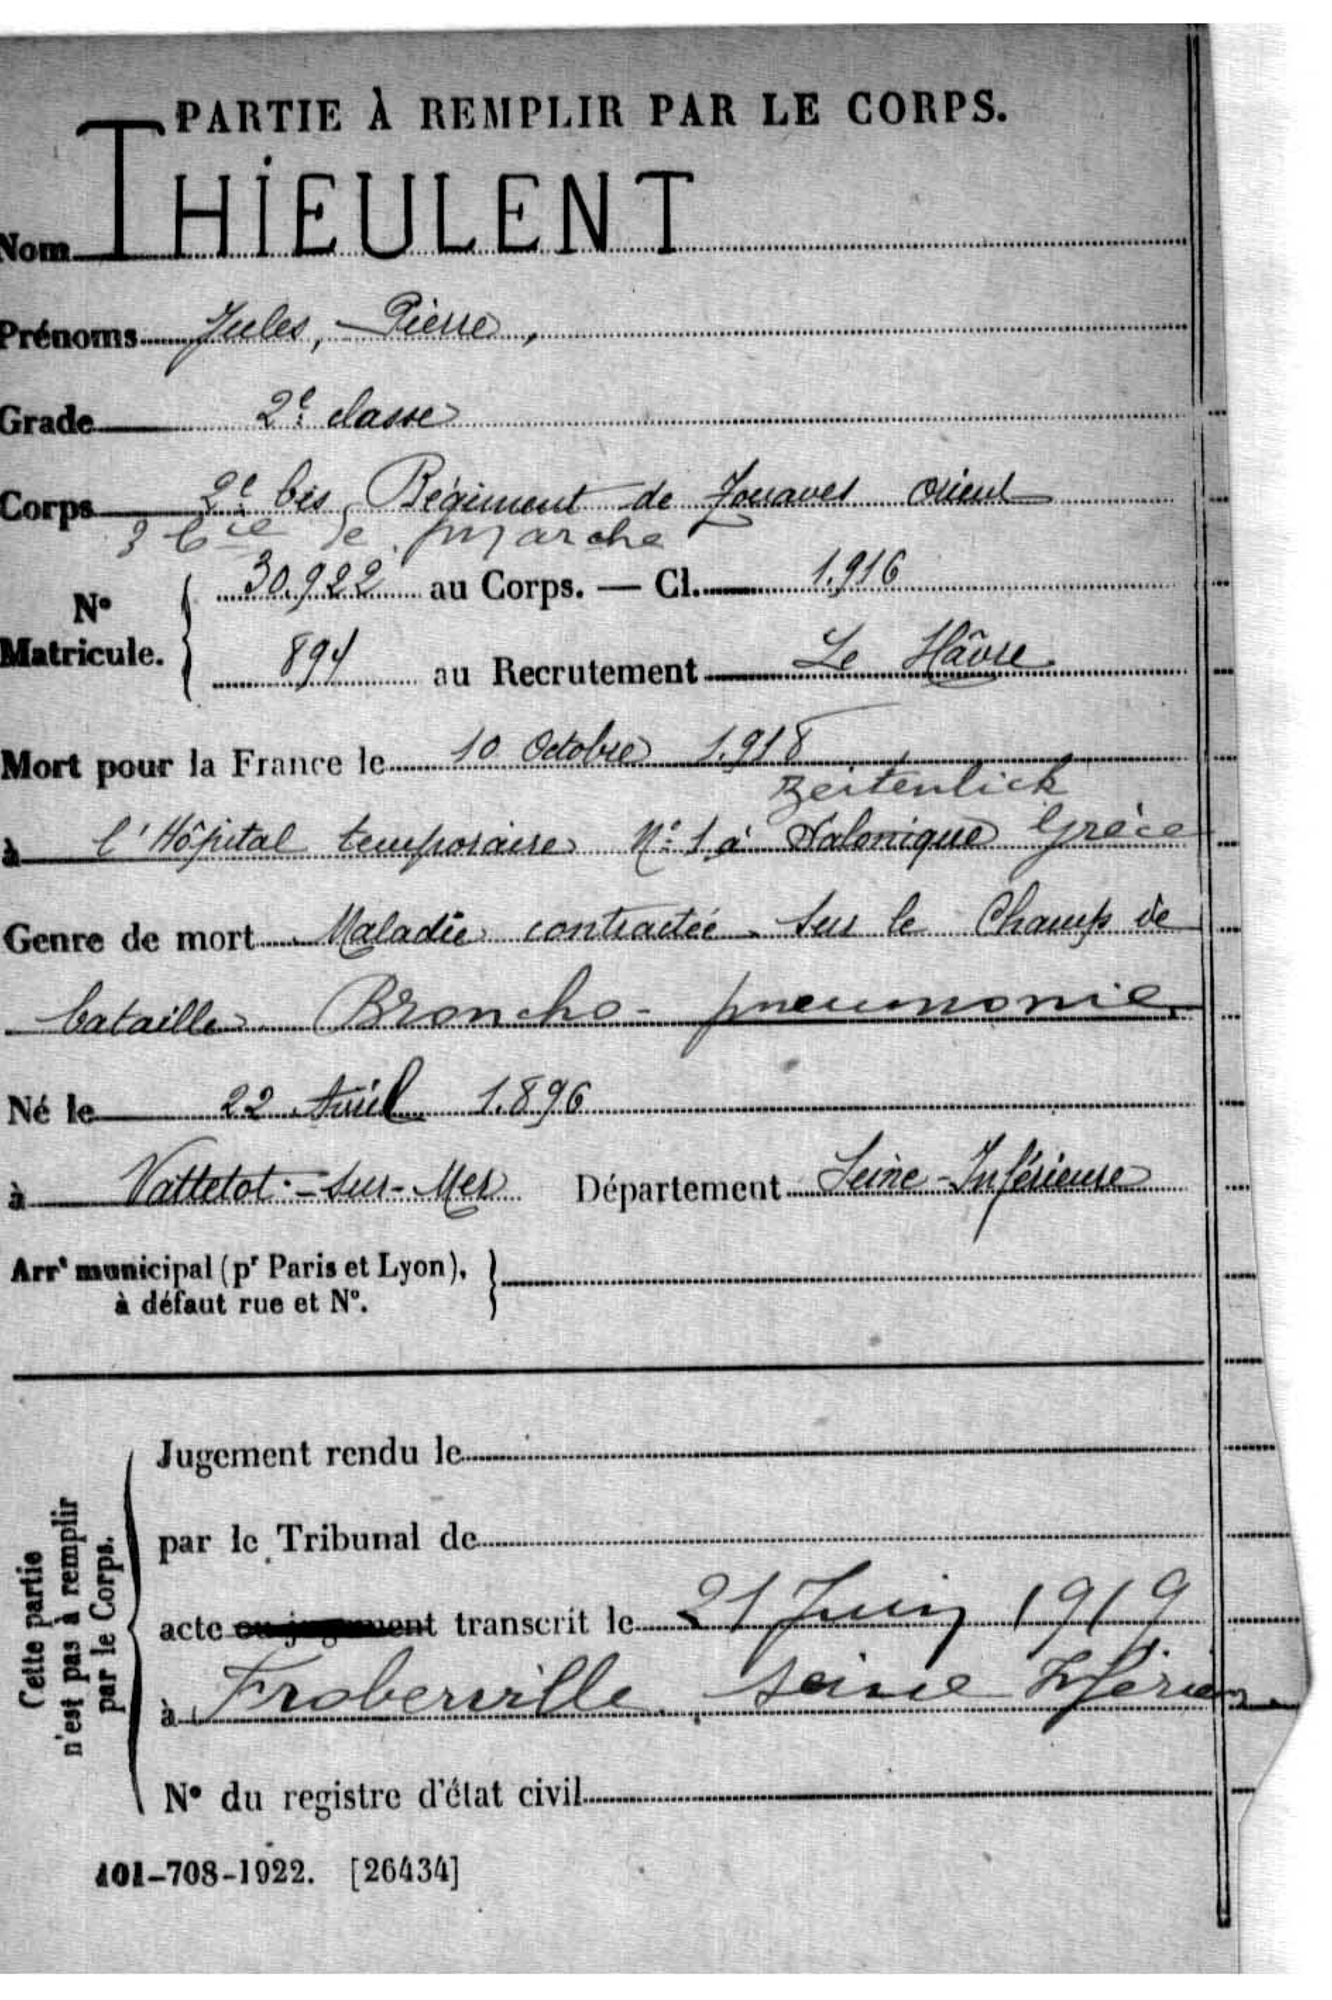 PARTIE À REMPLIR PAR LE CORPS.
Nom THIEULENT
Prénoms Jules, Pierre,
Grade 2e classe
Corps 2e bis Régiment de Zouaves Orient
3 Cie de marche
N° Matricule. 30.922 au Corps. — Cl. 1.916
894 au Recrutement Le Hâvre
Mort pour la France le 10 Octobre 1.918
Zeitenlick
à l'Hôpital temporaire N° 1 à Salonique Grèce
Genre de mort Maladie contractée sur le Champ de
bataille Broncho-pneumonie
Né le 22 Avril 1.896
à Vattetot-sur-Mer Département Seine-Inférieure
Arrt municipal (pr Paris et Lyon),
à défaut rue et N°.
Cette partie
n'est pas à remplir
par le Corps.
Jugement rendu le
par le Tribunal de
acte ou jugement transcrit le 21 Juin 1919
à Froberville Seine Inférieu
N° du registre d'état civil
101-708-1922. [26434]